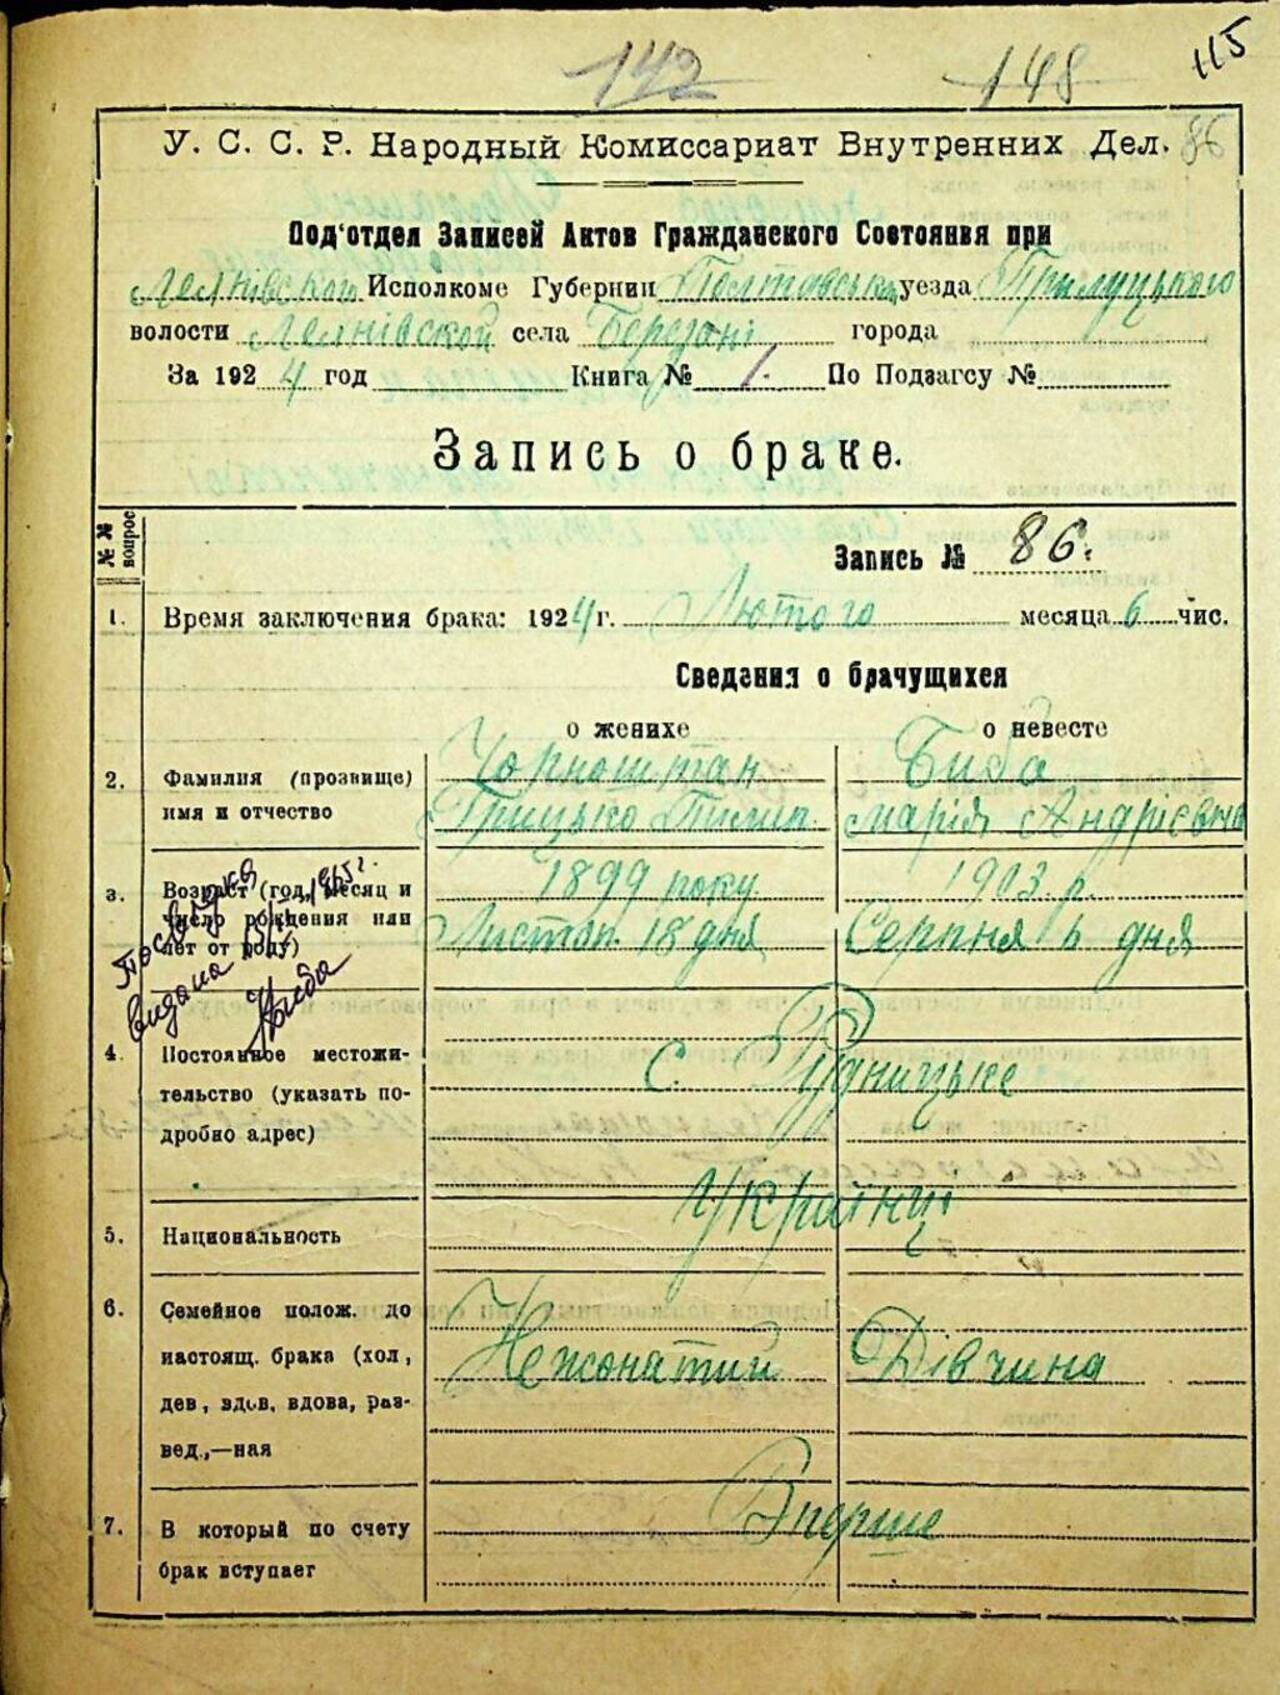 142 148 115
У. С. С. Р. Народный Комиссариат Внутренних Дел. 86
Под'отдел Записей Актов Гражданского Состояния при
Исполкоме Губернии Полтавськ. уезда Прилуцького
волости села Березані города
За 1924 год Книга № 1. По Подзагсу №
Запись о браке.
№ № вопрос
Запись № 86.
1. Время заключения брака: 1924 г. Лютого месяца 6 чис.
Сведения о брачущихся
о женихе о невесте
2. Фамилия (прозвище) Чорноштан Биба
имя и отчество Грицько Пилип. Марія Андрієвна
3. Возраст (год, месяц и 1899 року 1903 р.
число рождения или Листоп. 18 дня Серпня 6 дня
лет от роду)
видана
4. Постоянное местожи-
тельство (указать по- с. Рудницьке
дробно адрес)
5. Национальность Українці
6. Семейное полож. до
настоящ. брака (хол, Нежонатий Дівчина
дев, вдов, вдова, раз-
вед.,—ная
7. В который по счету Вперше
брак вступает